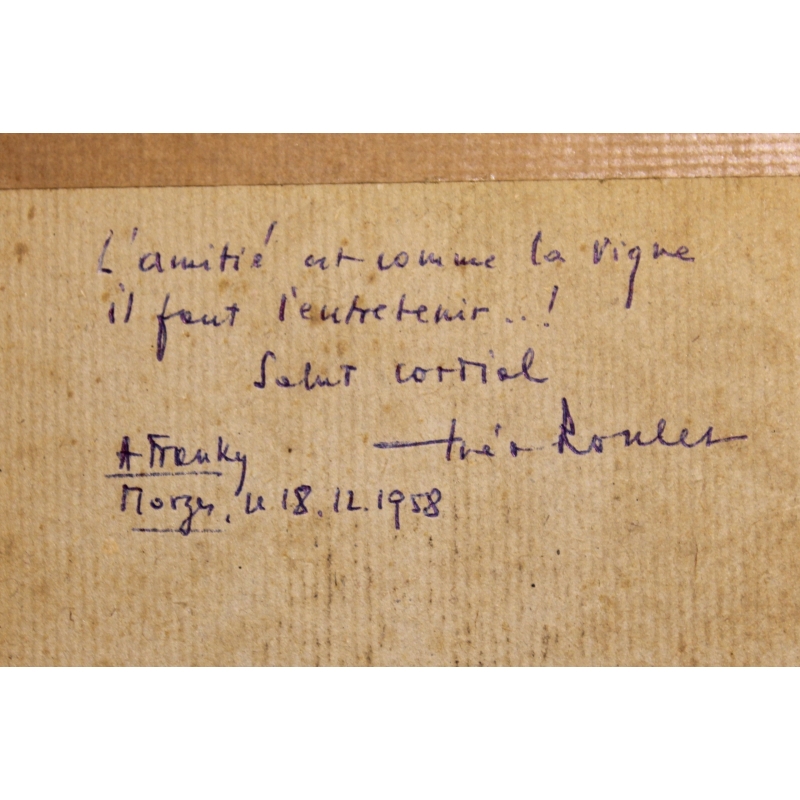 L'amitié est comme la vigne
il faut l'entretenir...!
Salut cordial
Roulet
A Franky
Morges, le 18.12.1958